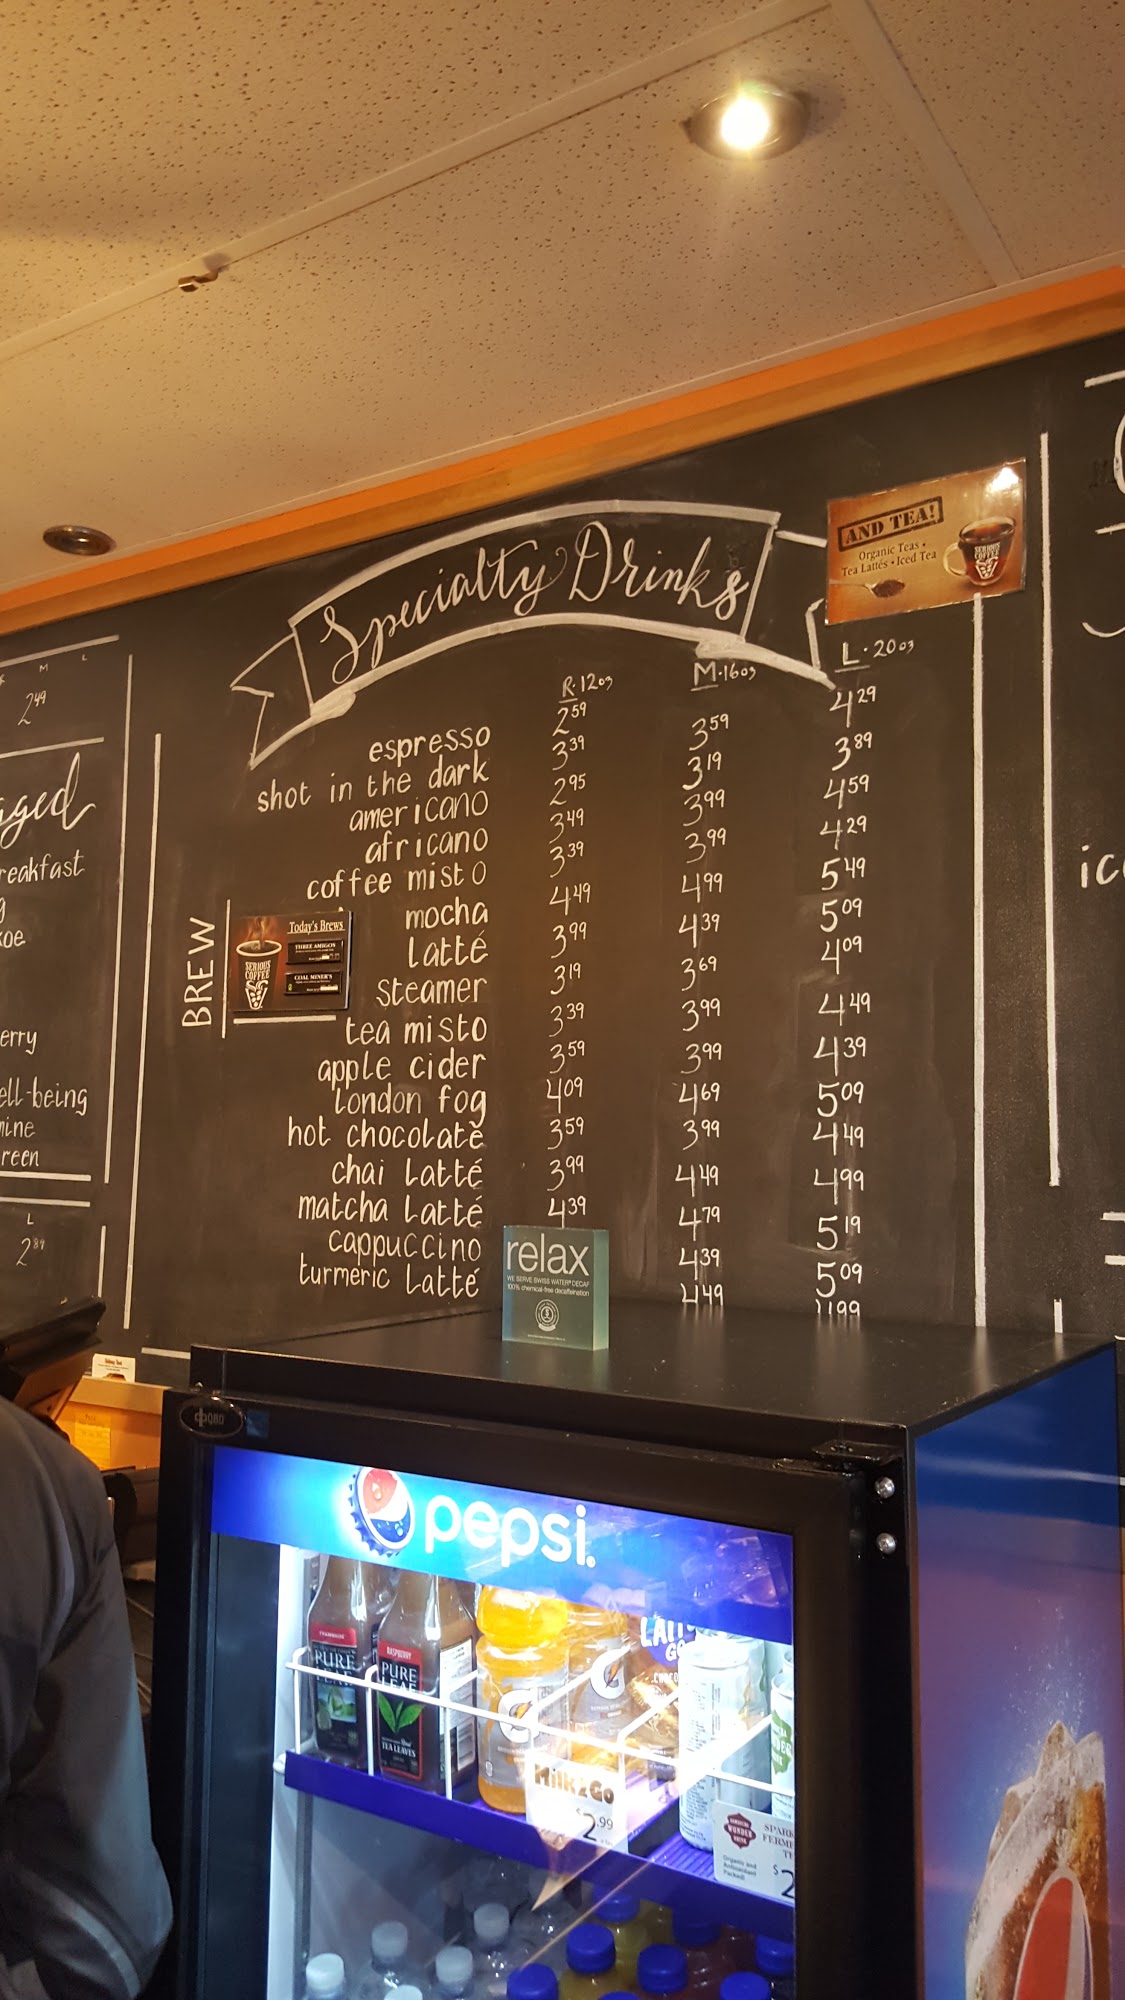 Specialty Drinks
AND TEA!
Organic Teas •
Tea Lattés • Iced Tea
SERIOUS COFFEE
R·12oz M·16oz L·20oz
espresso 2⁵⁹
shot in the dark 3³⁹ 3⁵⁹ 4²⁹
americano 2⁹⁵ 3¹⁹ 3⁸⁹
africano 3⁴⁹ 3⁹⁹ 4⁵⁹
coffee misto 3³⁹ 3⁹⁹ 4²⁹
mocha 4⁴⁹ 4⁹⁹ 5⁴⁹
Latté 3⁹⁹ 4³⁹ 5⁰⁹
steamer 3¹⁹ 3⁶⁹ 4⁰⁹
tea misto 3³⁹ 3⁹⁹ 4⁴⁹
apple cider 3⁵⁹ 3⁹⁹ 4³⁹
London fog 4⁰⁹ 4⁶⁹ 5⁰⁹
hot chocolate 3⁵⁹ 3⁹⁹ 4⁴⁹
chai Latté 3⁹⁹ 4⁴⁹ 4⁹⁹
matcha Latté 4³⁹ 4⁷⁹ 5¹⁹
cappuccino 4³⁹ 5⁰⁹
turmeric Latté 4⁴⁹ 4⁹⁹
BREW
Today's Brews
THREE AMIGOS
COAL MINER'S
SERIOUS COFFEE
M L
2⁴⁹
reakfast
erry
ell-being
mine
reen
L
2⁸⁹
ice
relax
WE SERVE SWISS WATER® DECAF
100% chemical-free decaffeination
pepsi.
PURE LEAF
RASPBERRY
PURE LEAF
TEA LEAVES
G
G
Milk2Go
$2.99
WONDER
Organic and
Antioxidant
Packed!
$2